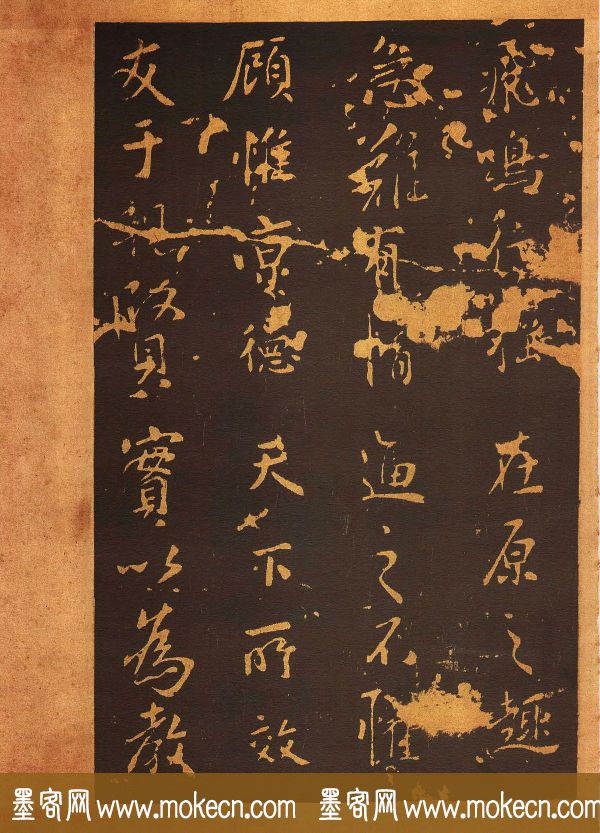 飛鳴行搖在原之趣
急難有情逼之不懼
顧惟涼德天下所效
友于親賢實以為教
墨客网 www.mokecn.com 墨客网 www.mokecn.com